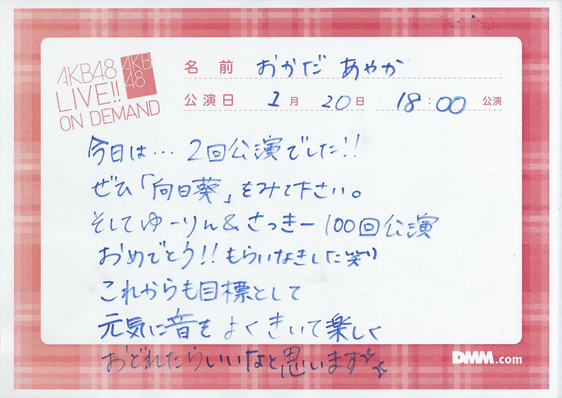 AKB48
LIVE!!
ON DEMAND
AKB
48
名前 おかだ あやか
公演日 1月 20日 18:00 公演
今日は…2回公演でした!!
ぜひ「向日葵」をみて下さい。
そしてゆーりん&さっきー100回公演
おめでとう!!もらいなきした笑)
これからも目標として
元気に音をよくきいて楽しく
おどれたらいいなと思います☆☆
DMM.com